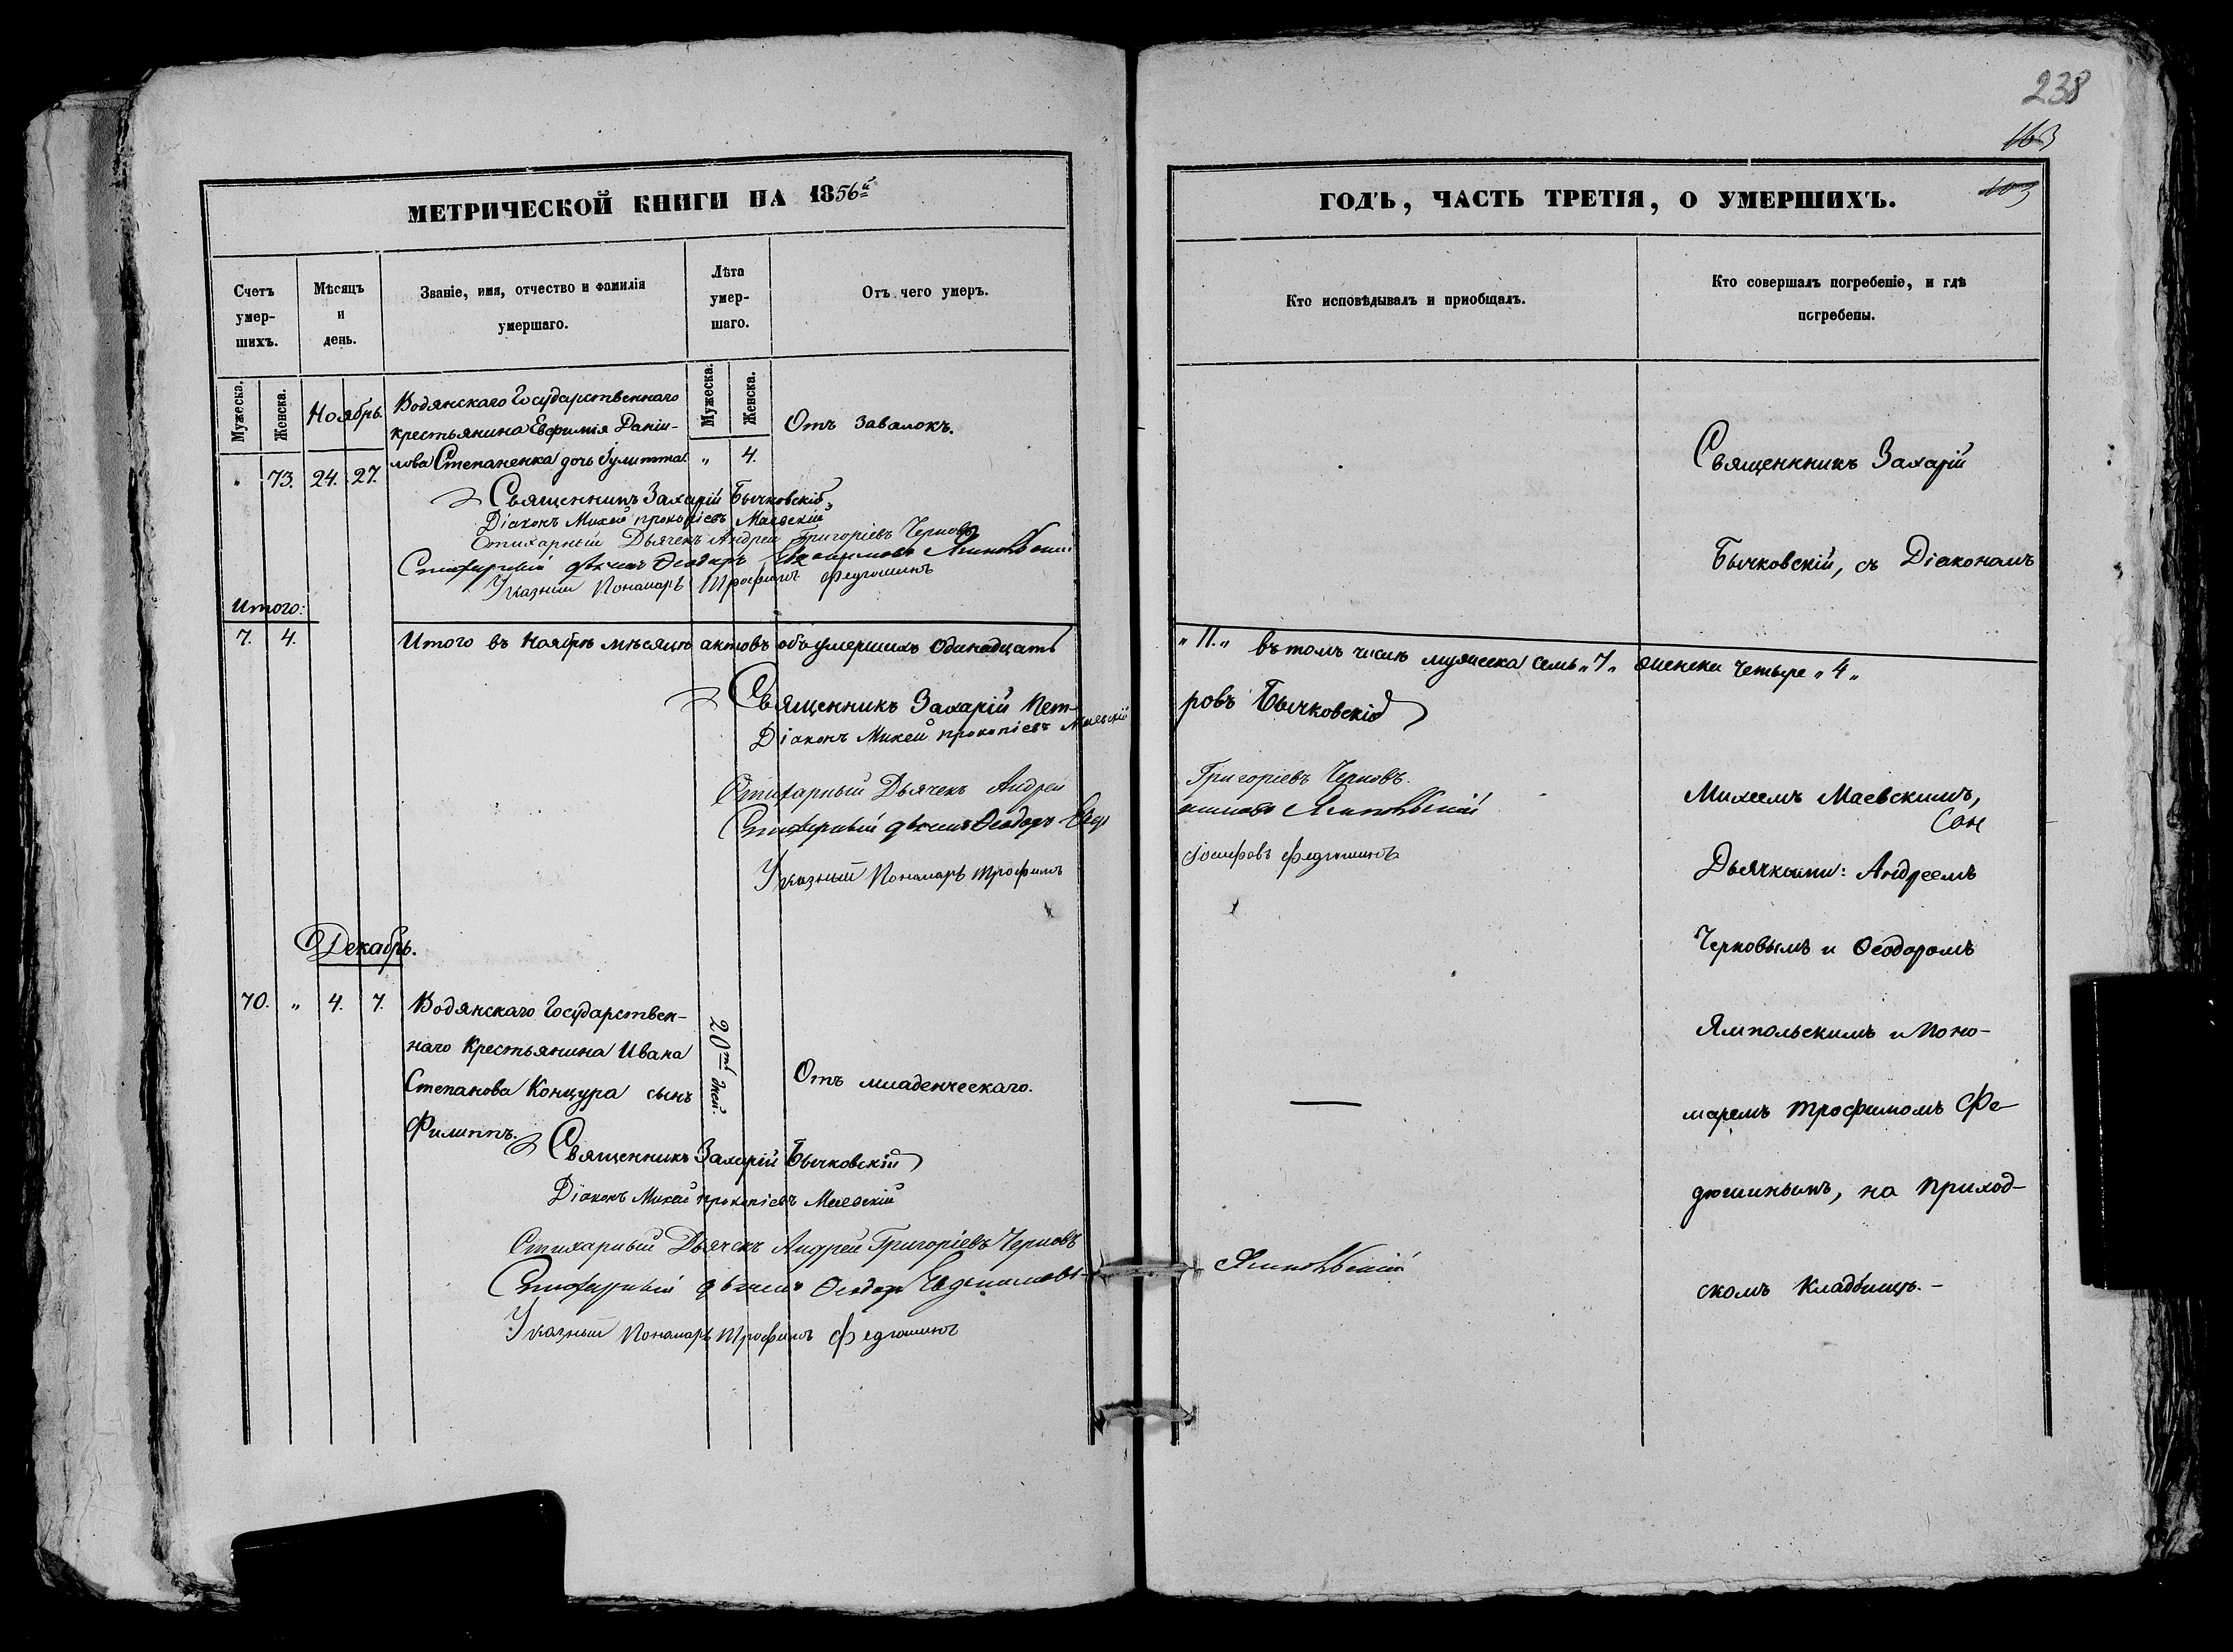 238
163
МЕТРИЧЕСКОЙ КНИГИ НА 1856й
ГОДЪ, ЧАСТЬ ТРЕТІЯ, О УМЕРШИХЪ.
Счетъ умер-шихъ.
Мѣсяцъ и день.
Званіе, имя, отчество и фамилія умершаго.
Лѣта умер-шаго.
Отъ чего умеръ.
Кто исповѣдывалъ и пріобщалъ.
Кто совершалъ погребеніе, и гдѣ погребены.
Мужеска. Женска.
Ноябрь.
Мужеска. Женска.
Водянскаго Государственнаго
крестьянина Евфимія Даніи-
лова Степаненка дочь Іулитта.
„ 73. 24. 27.
„ 4.
Отъ завалокъ.
Священникъ Захарій Бычковскій
Діаконъ Михей Прокопіевъ Маевскій
Стихарный Дьячекъ Андрей Григоріевъ Черновъ
Стихарный дьячекъ Ѳеодоръ Ямпольскій
Указный Пономарь Трофимъ Федюшинъ
Итого:
7. 4.
Итого въ Ноябрѣ мѣсяцѣ актовъ объ умершихъ одинадцать
„11.„ въ томъ числѣ мужеска семь „7„ женска четыре „4„
Священникъ Захарій Пет-
ровъ Бычковскій
Діаконъ Михей Прокопіевъ Маевскій
Стихарный Дьячекъ Андрей
Григоріевъ Черновъ.
Стихарный дьячекъ Ѳеодоръ
Ямпольскій
Указный Пономарь Трофимъ
Іосифовъ Федюшинъ
Декабрь.
70. „ 4. 7.
Водянскаго Государствен-
наго Крестьянина Ивана
Степанова Концура сынъ
Филиппъ.
20ть дней.
Отъ младенческаго.
—
Священникъ Захарій Бычковскій
Діаконъ Михей Прокопіевъ Маевскій
Стихарный Дьячекъ Андрей Григоріевъ Черновъ
Стихарный дьячекъ Ѳеодоръ
Ямпольскій
Указный Пономарь Трофимъ Федюшинъ
Священнникъ Захарій
Бычковскій, съ Діакономъ
Михеемъ Маевскимъ,
Дьячками: Андреемъ
Черновымъ и Ѳеодоромъ
Ямпольскимъ и Поно-
маремъ Трофимомъ Фе-
дюшинымъ, на Приход-
скомъ Кладбищѣ.-